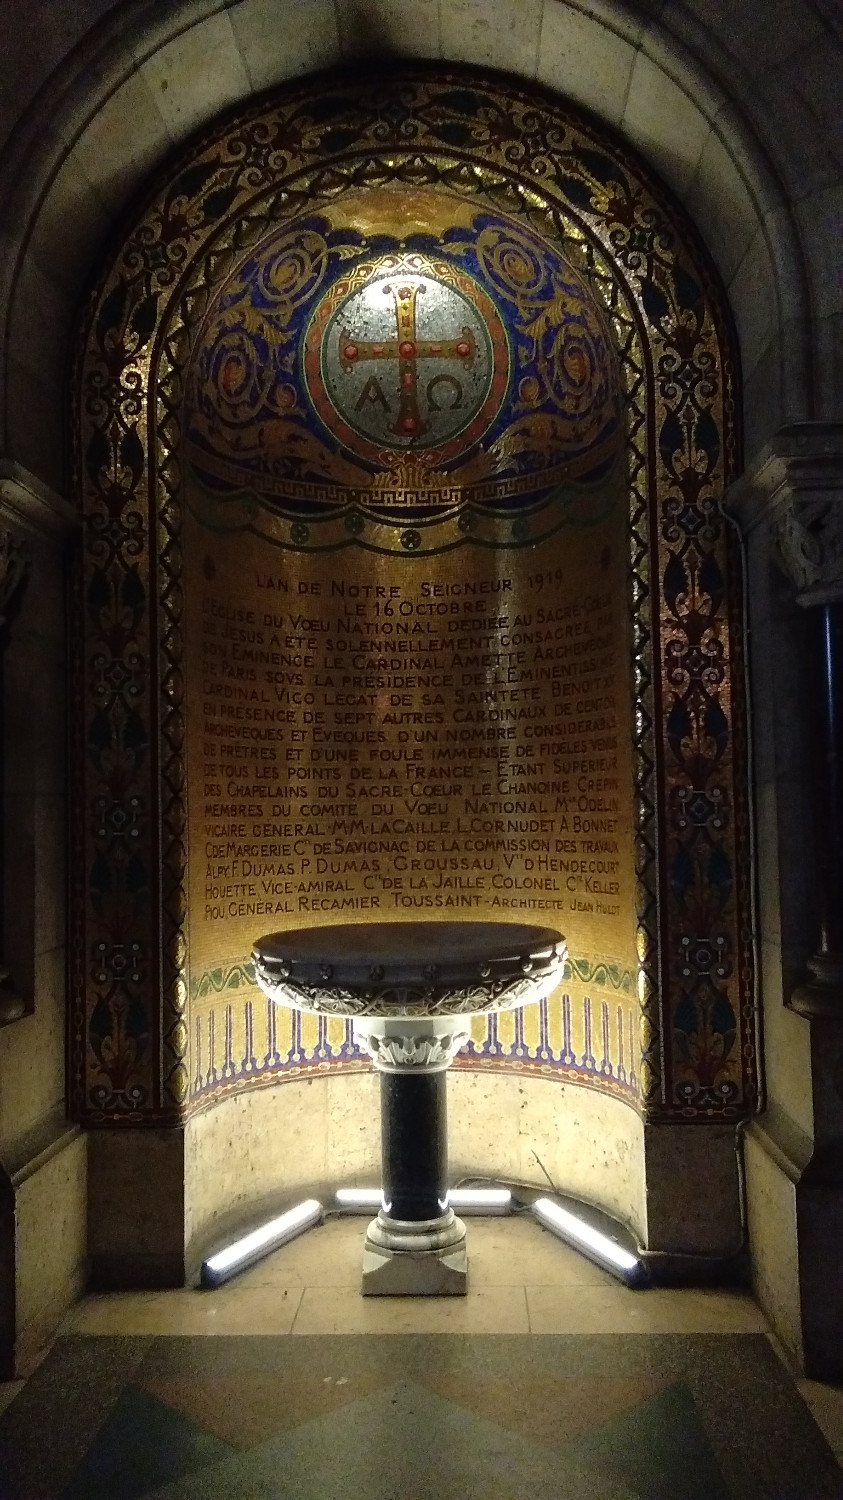 Α Ω
L'AN DE NOTRE SEIGNEUR 1919
LE 16 OCTOBRE
L'EGLISE DU VŒU NATIONAL DEDIEE AU SACRE-CŒUR
DE JESUS A ETE SOLENNELLEMENT CONSACREE PAR
SON EMINENCE LE CARDINAL AMETTE ARCHEVEQUE
DE PARIS SOVS LA PRESIDENCE DE L'EMINENTISSIME
CARDINAL VICO LEGAT DE SA SAINTETE BENOIT XV
EN PRESENCE DE SEPT AUTRES CARDINAUX DE CENT DIX
ARCHEVEQUES ET EVEQUES D'UN NOMBRE CONSIDERABLE
DE PRÊTRES ET D'UNE FOULE IMMENSE DE FIDELES VENUS
DE TOUS LES POINTS DE LA FRANCE – ETANT SUPERIEUR
DES CHAPELAINS DU SACRE-CŒUR LE CHANOINE CREPIN
MEMBRES DU COMITE DU VŒU NATIONAL Mgr ODELIN
VICAIRE GENERAL·M·M·LACAILLE, L.CORNUDET A.BONNET
G DE MARGERIE Cte DE SAVIGNAC DE LA COMMISSION DES TRAVAUX
ALPY, F.DUMAS, P.DUMAS, GROUSSAU, Vte D'HENDECOURT
HOUETTE, VICE-AMIRAL Cte DE LA JAILLE, COLONEL Cte KELLER
PIOU, GÉNÉRAL RECAMIER, TOUSSAINT-ARCHITECTE JEAN HULOT